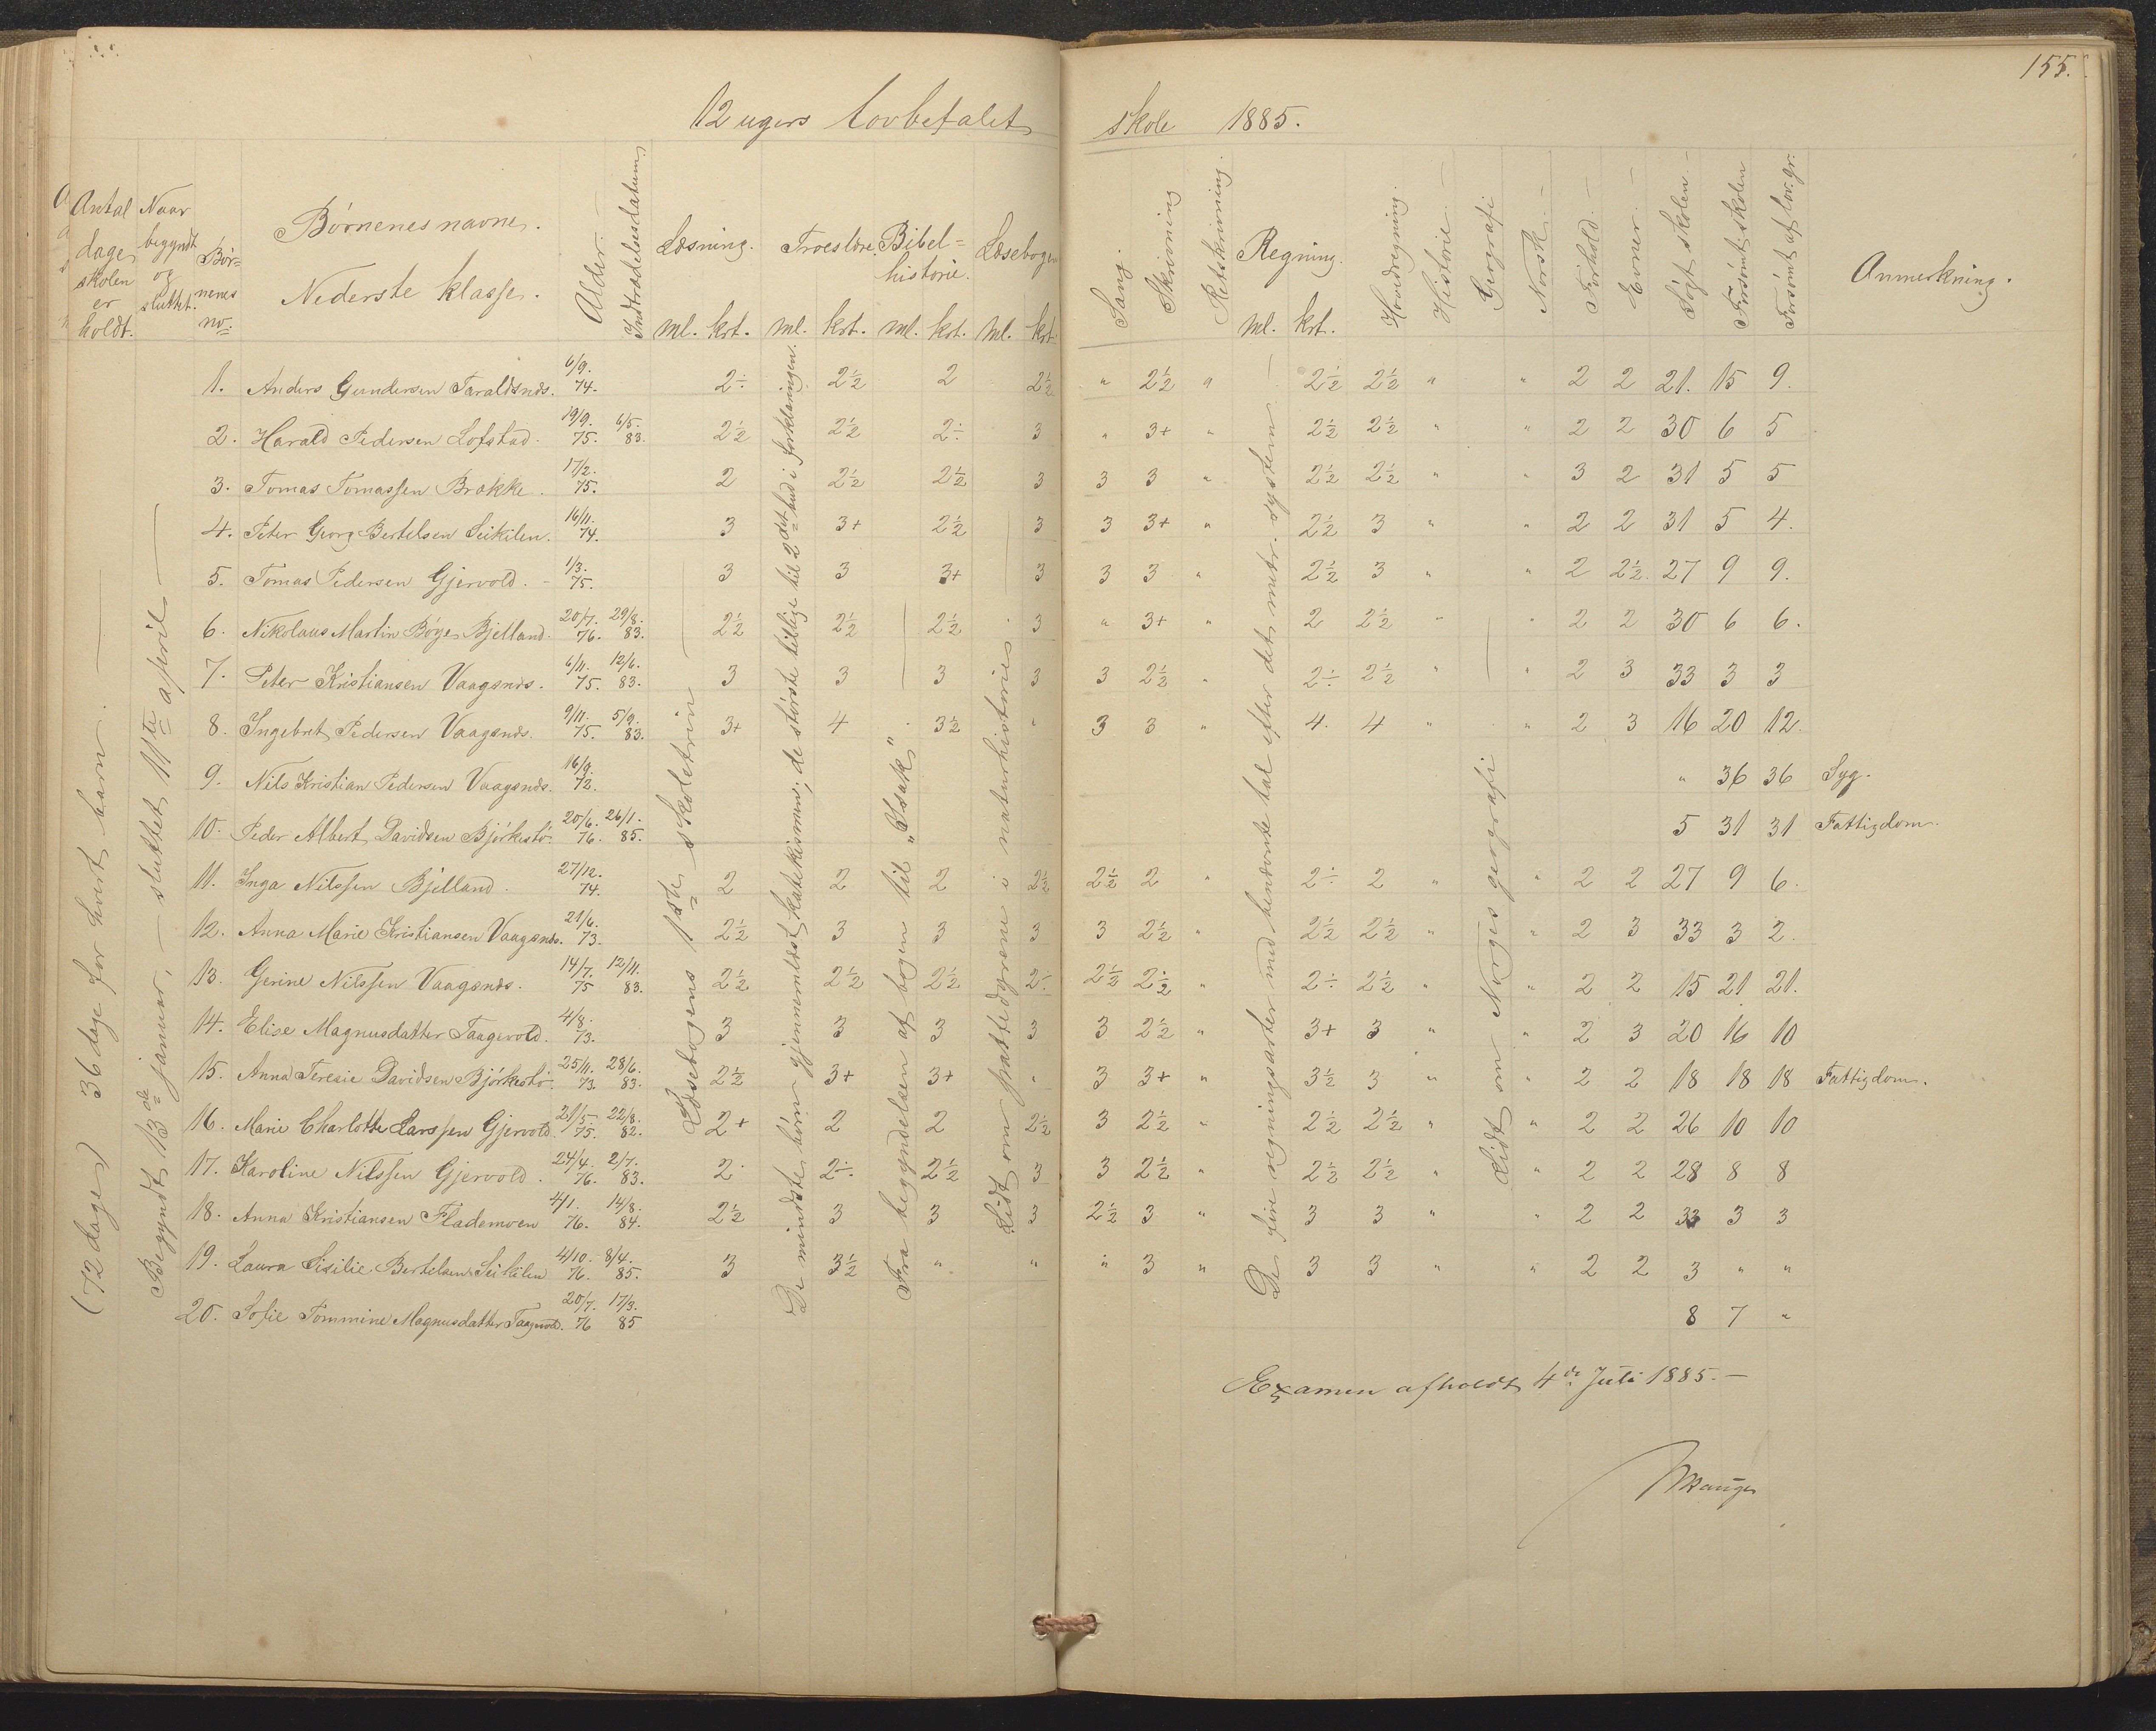 155.
12 ugers lovbefalet skole 1885.
Antal dage skolen er holdt.
Naar begyndt og sluttet.
Børnenes no.
Børnenes navne.
Nederste klasse.
Alder.
Indtrædelsesdatum
Læsning. ml. krt.
Troeslære. ml. krt.
Bibelhistorie. ml. krt.
Læsebogen ml. krt.
Sang.
Skrivning
Retskrivning.
Regning. ml. krt.
Hovedregning.
Historie.
Geografi
Norsk.
Forhold.
Evner.
Søgt skolen
Forsømt skolen
Forsømt af lov. gr.
Anmerkning.
(72 dage) 36 dage for hvert barn.
Begyndt 13de januar, – sluttet 11te april
Læsebogens 1ste skoletrin
De mindste børn gjennemlæst katekismus; de største tillige til 2det bud i forklaringen.
Fra begyndelsen af bogen til „Isak”
Lidt om pattedyrene i naturhistorien
De fire regningsarter med benævnte tal efter det metr. system
Lidt om Norges geografi
1. Anders Gundersen Taraldsnds. 6/9. 74. 2÷ 2½ 2 2½ " 2½ " 2½ 2½ " " 2 2 21. 15 9.
2. Harald Pedersen Lofstad. 19/9. 75. 6/5. 83. 2½ 2½ 2÷ 3 " 3+ " 2½ 2½ " " 2 2 30 6 5
3. Tomas Tomassen Brække. 17/2. 75. 2 2½ 2½ 3 3 3 " 2½ 2½ " " 3 2 31 5 5
4. Peter Georg Bertelsen Seikilen. 16/11. 74. 3 3+ 2½ 3 3 3+ " 2½ 3 " " 2 2 31 5 4.
5. Tomas Pedersen Gjervold. 1/3. 75. 3 3 3+ 3 3 3 " 2½ 3 " " 2 2½. 27 9 9.
6. Nikolaus Martin Bøye Bjelland. 20/7. 76. 29/8. 83. 2½ 2½ 2½ 3 " 3+ " 2 2½ " " 2 2 30 6 6.
7. Peter Kristiansen Vaagsnds. 6/11. 75. 12/6. 83. 3 3 3 3 3 2½ " 2÷ 2½ " " 2 3 33 3 3
8. Ingebret Pedersen Vaagsnds. 9/11. 75. 5/9. 83. 3+ 4 3½ " 3 3 " 4. 4 " " 2 3 16 20 12.
9. Nils Kristian Pedersen Vaagsnds. 16/9. 72. " 36 36 Syg.
10. Peder Albert Davidsen Bjørkestø. 20/6. 76. 26/1. 85. 5 31 31 Fattigdom.
11. Inga Nilssen Bjelland. 27/12. 74. 2 2 2 2½ 2½ 2 " 2÷ 2 " " 2 2 27 9 6.
12. Anna Marie Kristiansen Vaagsnds. 21/6. 73. 2½ 3 3 3 3 2½ " 2½ 2½ " " 2 3 33 3 2.
13. Gerine Nilssen Vaagsnds. 14/7. 75 12/11. 83. 2½ 2½ 2½ 2÷ 2½ 2½ " 2÷ 2½ " " 2 2 15 21 21.
14. Elise Magnusdatter Taagevold. 4/8. 73. 3 3 3 3 3 2½ " 3+ 3 " " 2 3 20 16 10
15. Anna Teresie Davidsen Bjørkestø. 25/11. 73. 28/6. 83. 2½ 3+ 3+ " 3 3+ " 3½ 3 " " 2 2 18 18 18 Fattigdom.
16. Marie Charlotte Larssen Gjervold 21/5. 75. 22/8. 82. 2+ 2 2 2½ 3 2½ " 2½ 2½ " " 2 2 26 10 10
17. Karoline Nilssen Gjervold. 24/4. 76. 2/7. 83. 2 2÷ 2½ 3 3 2½ " 2½ 2½ " " 2 2 28 8 8
18. Anna Kristiansen Flademoen 4/1. 76. 14/8. 84. 2½ 3 3 3 2½ 3 " 3 3 " " 2 2 33 3 3
19. Laura Sisilie Bertelsen Seikilen 4/10. 76. 8/4. 85. 3 3½ " " " 3 " 3 3 " " 2 2 3 " "
20. Sofie Tommine Magnusdatter Taagevold. 20/7. 76 17/3. 85 8 7 "
Examen afholdt 4de Juli 1885.–